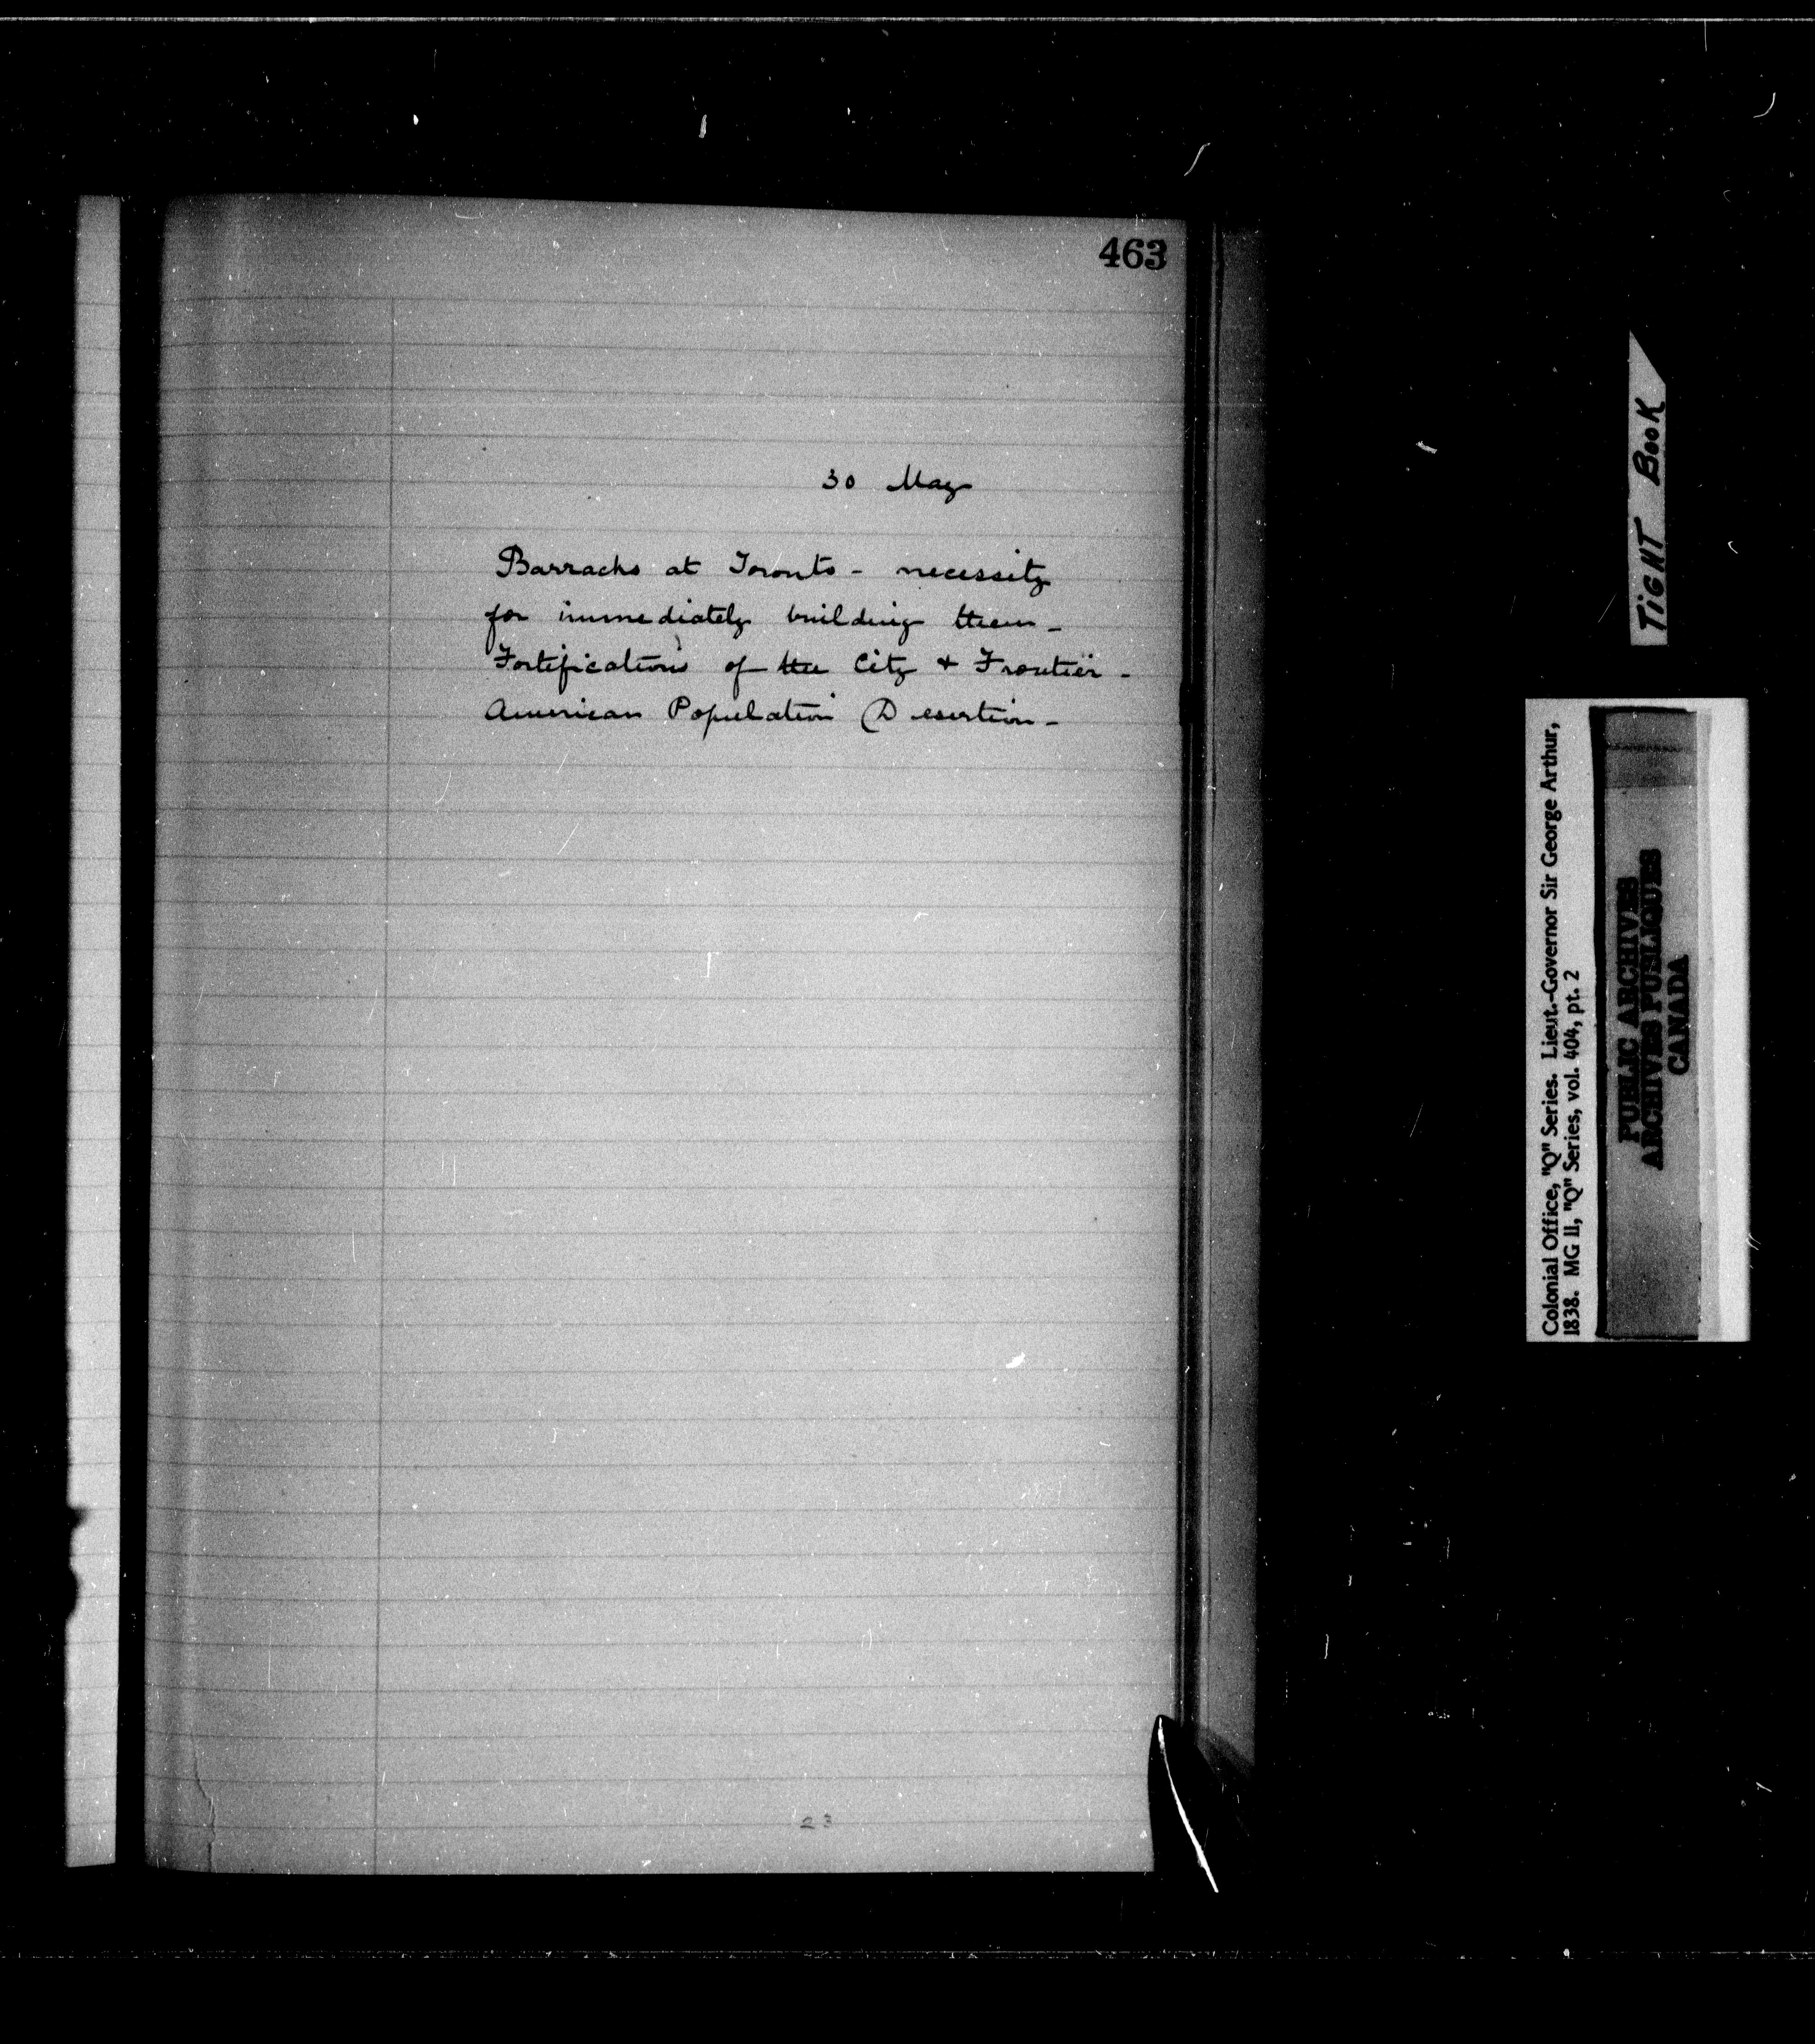 463
30 May
Barracks at Toronto - necessity
for immediately building them -
Fortifications of the City & Frontier -
American Population Desertion -
23
TIGHT BOOK
Colonial Office, "Q" Series. Lieut.-Governor Sir George Arthur,
1838. MG 11, "Q" Series, vol. 404, pt. 2
PUBLIC ARCHIVES
ARCHIVES PUBLIQUES
CANADA